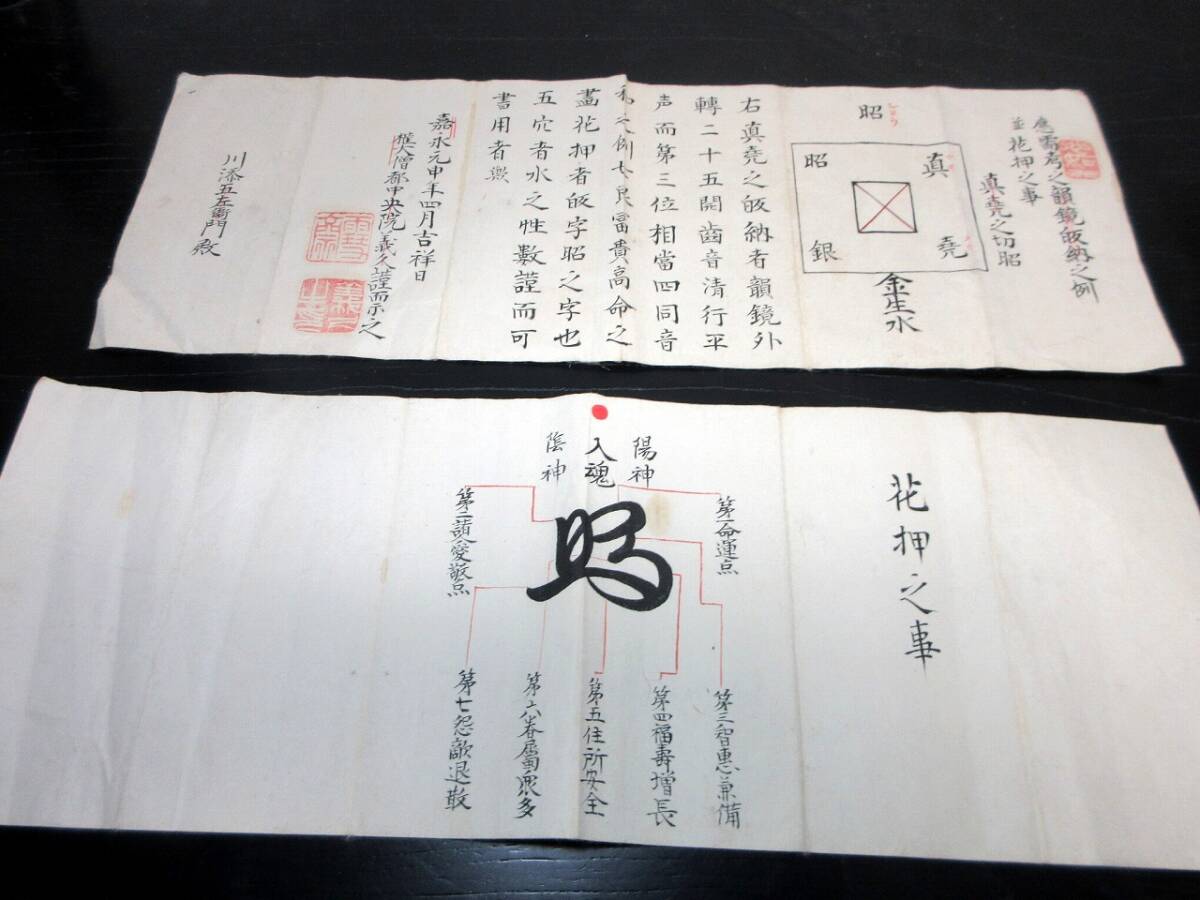 應需為之韻鏡皈納之例
並花押之事
真堯之切昭
昭
真
堯
昭
銀
金生水
右真堯之皈納者韻鏡外
轉二十五開齒音清行平
声而第三位相當四同音
和之例也良冨貴高命之
畫花押者皈字昭之字也
五穴者水之性数謹而可
書用者歟
嘉永元申年四月吉祥日
権大僧都中央院義久謹而示之
川添五左衛門殿
花押之事
陽神
入魂
陰神
昭
第一命運点
第二諸人愛敬点
第三智恵兼備
第四福壽増長
第五住所安全
第六眷属衆多
第七怨敵退散